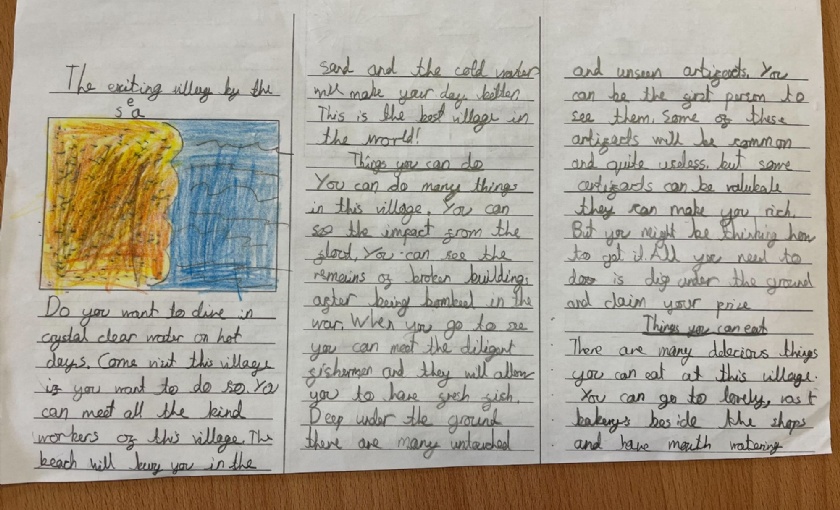 The exiting village by the
sea
Do you want to dive in
crystal clear water on hot
days. Come visit this village
if you want to do so. You
can meet all the kind
workers of this village. The
beach will bury you in the
sand and the cold water
will make your day better
This is the best village in
the world!
Things you can do
You can do many things
in this village. You can
see the impact from the
flood. You can see the
remains of broken building,
after being bombed in the
war. When you go to see
you can meet the diligent
fishermen and they will allow
you to have fresh fish.
Deep under the ground
there are many untouched
and unseen artifacts. You
can be the first person to
see them. Some of these
artifacts will be common
and quite useless. but some
artifacts can be valubale
they can make you rich.
But you might be thinking how
to get it. All you need to
doo is dig under the ground
and claim your price
Things you can eat
There are many delacious things
you can eat at this village.
You can go to lovely, vast
bakerys beside the shops
and have mouth watering